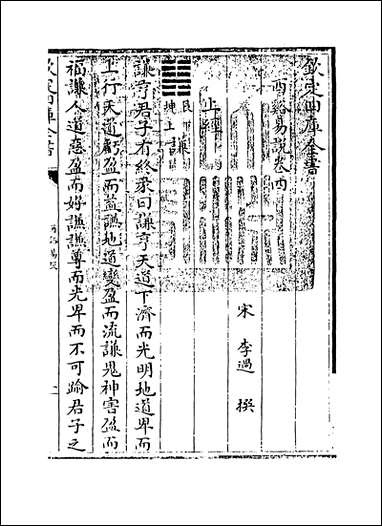 欽定四庫全書
西谿易說卷四
宋 李過 撰
上經
艮下
坤上
謙
謙亨君子有終彖曰謙亨天道下濟而光明地道卑而
上行天道虧盈而益謙地道變盈而流謙鬼神害盈而
福謙人道惡盈而好謙謙尊而光卑而不可踰君子之
欽定四庫全書
西谿易說